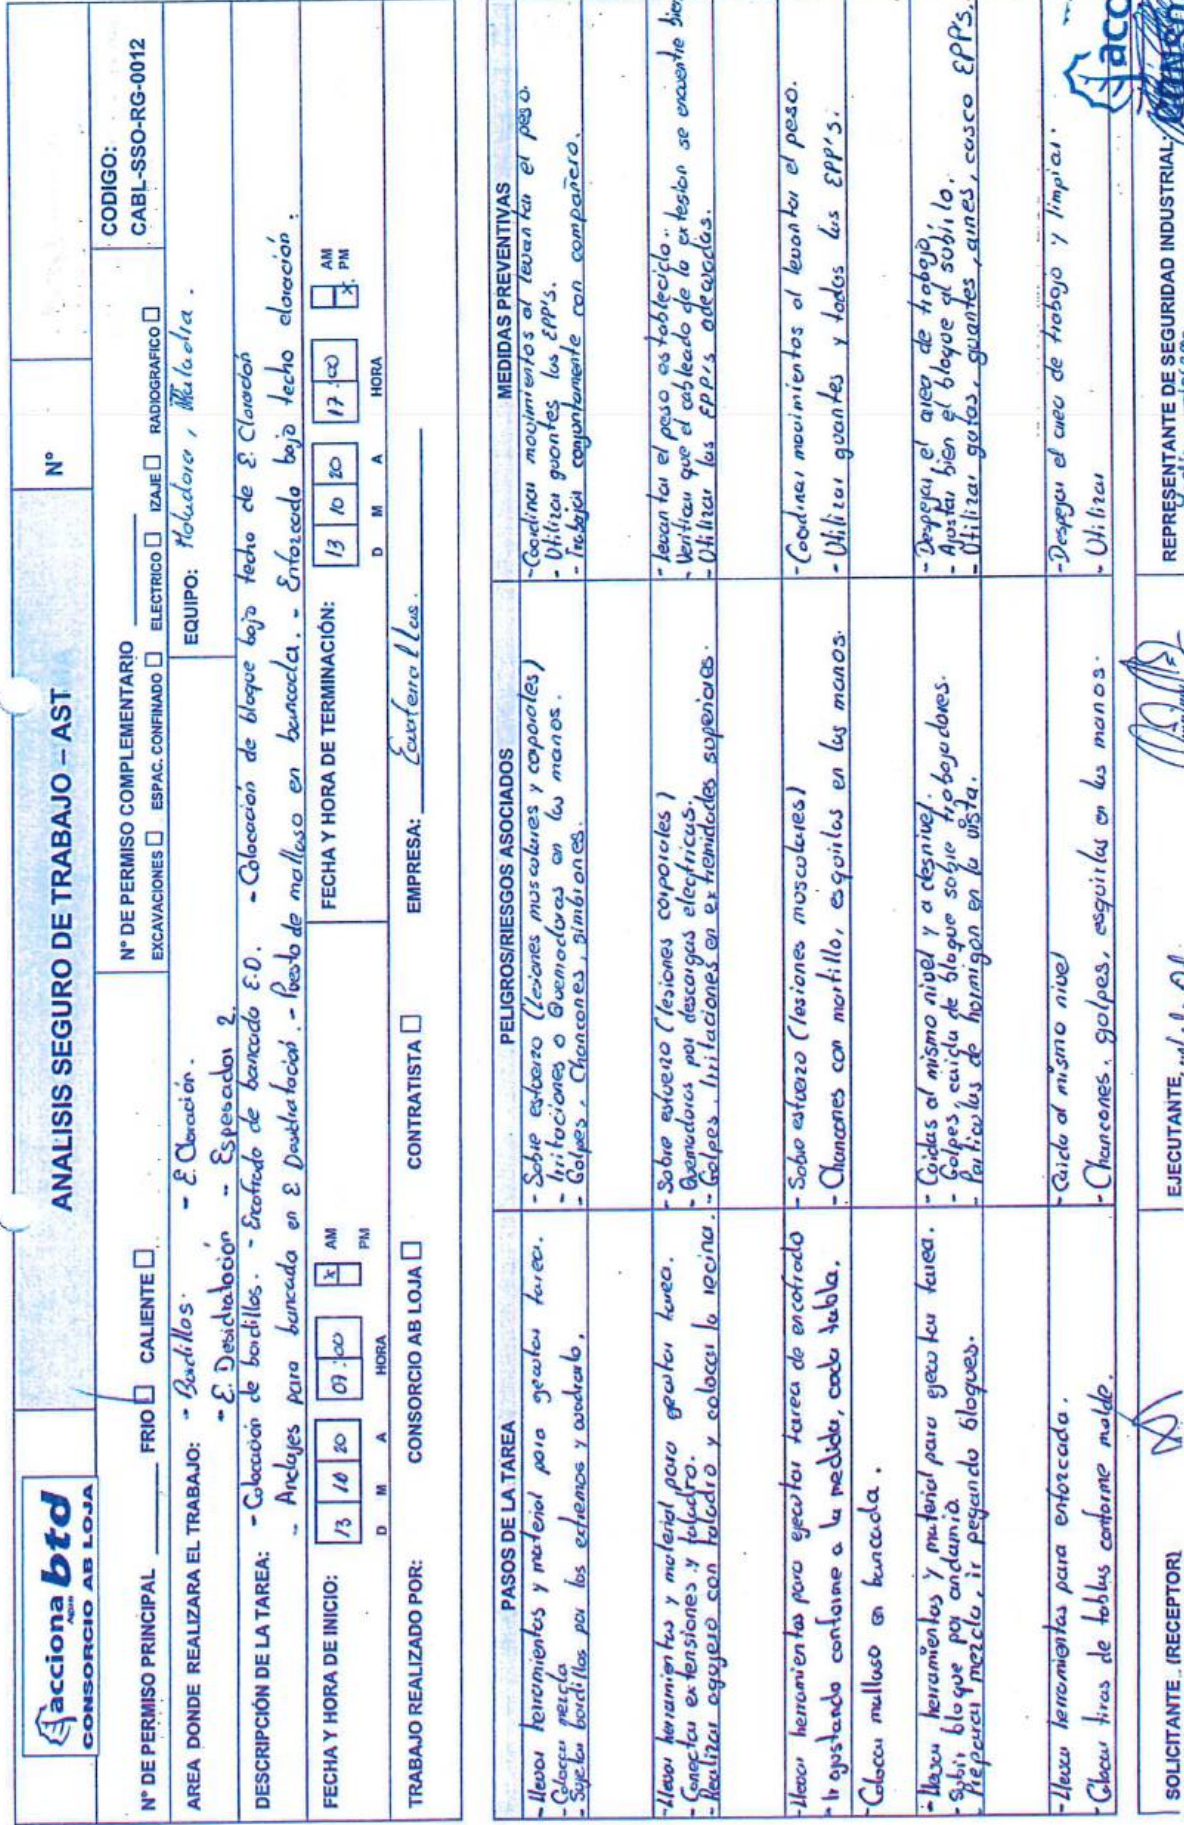 acciona btd
Agua
CONSORCIO AB LOJA
ANALISIS SEGURO DE TRABAJO – AST
N°
N° DE PERMISO PRINCIPAL
FRIO
CALIENTE
N° DE PERMISO COMPLEMENTARIO
EXCAVACIONES ESPAC. CONFINADO ELECTRICO IZAJE RADIOGRAFICO
CODIGO:
CABL-SSO-RG-0012
AREA DONDE REALIZARA EL TRABAJO: - Bordillos. - E. Cloración.
- E. Desidratación - Espesador 2.
EQUIPO: Moladora,
DESCRIPCIÓN DE LA TAREA: - Colocación de bordillos. - Encofrado de bancada E.D. - Colocación de bloque bajo techo de E. Cloración
- Anclajes para bancada en E Desidratación. - Puesto de malluso en bancada. - Enforcado bajo techo cloración.
FECHA Y HORA DE INICIO: 13 10 20 07:00 x AM PM
D M A HORA
FECHA Y HORA DE TERMINACIÓN: 13 10 20 17:00 AM x PM
D M A HORA
TRABAJO REALIZADO POR: CONSORCIO AB LOJA CONTRATISTA EMPRESA:
PASOS DE LA TAREA PELIGROS/RIESGOS ASOCIADOS MEDIDAS PREVENTIVAS
- Llevar herramientas y material para gecutar tarea.
- Colocar mezcla
- Sujetar bordillos por los extremos y cuadrarlo.
- Sobre esfuerzo (Lesiones musculares y corporales)
- Irritaciones o Quemaduras en las manos.
- Golpes, Chancones,
- Coordinar movimientos al levantar el peso.
- Utilizar guantes las EPP's.
- Trabajar conjuntamente con compañero.
- Llevar herramientas y material para gecutar tarea.
- Conectar extensiones y taladro.
- Realizar agujero con taladro y colocar la recina.
- Sobre esfuerzo (lesiones corporales)
- Quemaduras por descargas electricas.
- Golpes, Irritaciones en extremidades superiores.
- levantar el peso establecido.
- Verificar que el cableado de la extesion se encuentre bien
- Utilizar las EPP's adecuadas.
- Llevar herramientas para ejecutar tarea de encofrado
- Ir ajustando conforme a la medida, cada tabla.
- Colocar malluso en bancada.
- Sobre esfuerzo (lesiones musculares)
- Chancones con martillo, esquirlas en las manos.
- Coordinar movimientos al levantar el peso.
- Utilizar guantes y todas las EPP's.
- Llevar herramientas y material para ejecutar tarea.
- Subir bloque por andamio.
- Preparar mezcla, ir pegando bloques.
- Caidas al mismo nivel y a desnivel.
- Golpes, caida de bloque sobre trabajadores.
- Particulas de hormigon en la vista.
- Despejar el area de trabajo
- Ajustar bien el bloque al subirlo.
- Utilizar gafas, guantes, casco EPP's.
- Llevar herramientas para enforcada.
- Colocar tiras de tablas conforme molde.
- Caida al mismo nivel
- Chancones, golpes, esquirlas en las manos.
- Despejar el area de trabajo y limpiar.
- Utilizar
SOLICITANTE (RECEPTOR)
EJECUTANTE
REPRESENTANTE DE SEGURIDAD INDUSTRIAL: